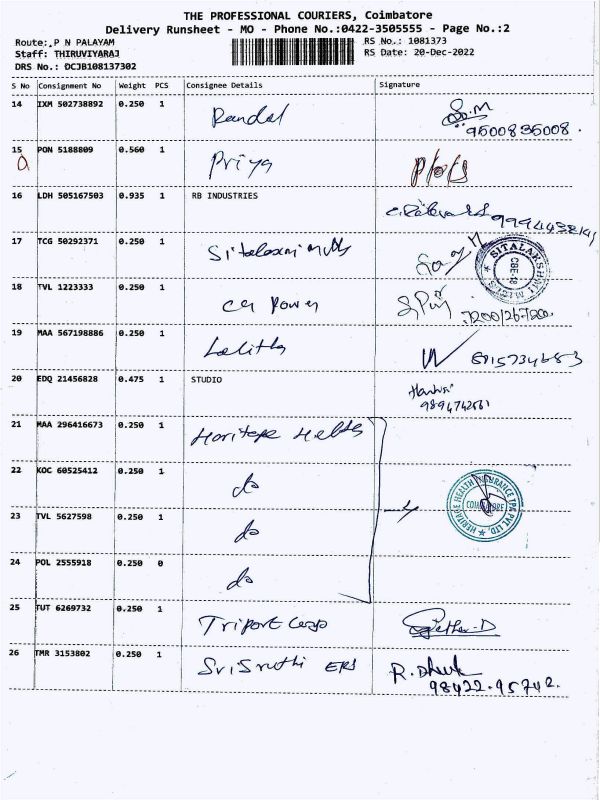 THE PROFESSIONAL COURIERS, Coimbatore
Delivery Runsheet - MO - Phone No.:0422-3505555 - Page No.:2
Route: P N PALAYAM
RS No.: 1081373
Staff: THIRUVIYARAJ
RS Date: 20-Dec-2022
DRS No.: OCJB108137302
S No Consignment No Weight PCS Consignee Details Signature
14 IXM 502738892 0.250 1
9500836008.
15 PON 5188809 0.560 1 Priya
16 LDH 505167503 0.935 1 RB INDUSTRIES
17 TCG 50292371 0.250 1
SITALAKSHMI MILLS
CBE-18
18 TVL 1223333 0.250 1 Power
19 MAA 567198886 0.250 1 Lalitha
20 EDQ 21456828 0.475 1 STUDIO
21 MAA 296416673 0.250 1 Heritage
22 KOC 60525412 0.250 1 do
HERITAGE HEALTH INSURANCE TPA PVT. LTD.
COIMBATORE
23 TVL 5627598 0.250 1 do
24 POL 2555918 0.250 0 do
25 TUT 6269732 0.250 1 Triport
26 TMR 3153802 0.250 1 Sri Sruthi
98422.95742.